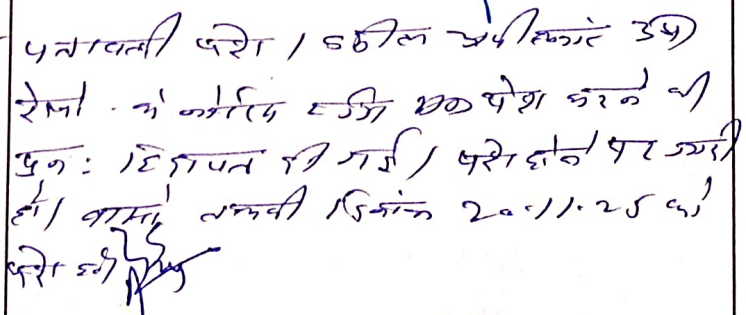 पत्रावली पेश। वकील अपीलांट उप।
रेस्पो. के नोटिस हेतु PF पेश करने की
पुनः हिदायत दी गई। पेश होने पर जारी
हो। वास्ते तलबी दिनांक 20.11.25 को
पेश हो।